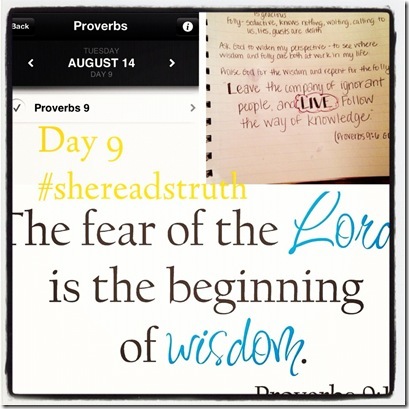 Back
Proverbs
TUESDAY
AUGUST 14
DAY 9
Proverbs 9
is gracious
Folly-seductive, knows nothing, waiting, calling to
us, lies, guests are death
Ask God to widen my perspective - to see where
wisdom and folly are both at work in my life.
Praise God for the wisdom and repent for the folly
Leave the company of ignorant
people, and LIVE. Follow
the way of knowledge.
(Proverbs 9:6
Day 9
#shereadstruth
The fear of the Lord
is the beginning
of wisdom.
Proverbs 9:1